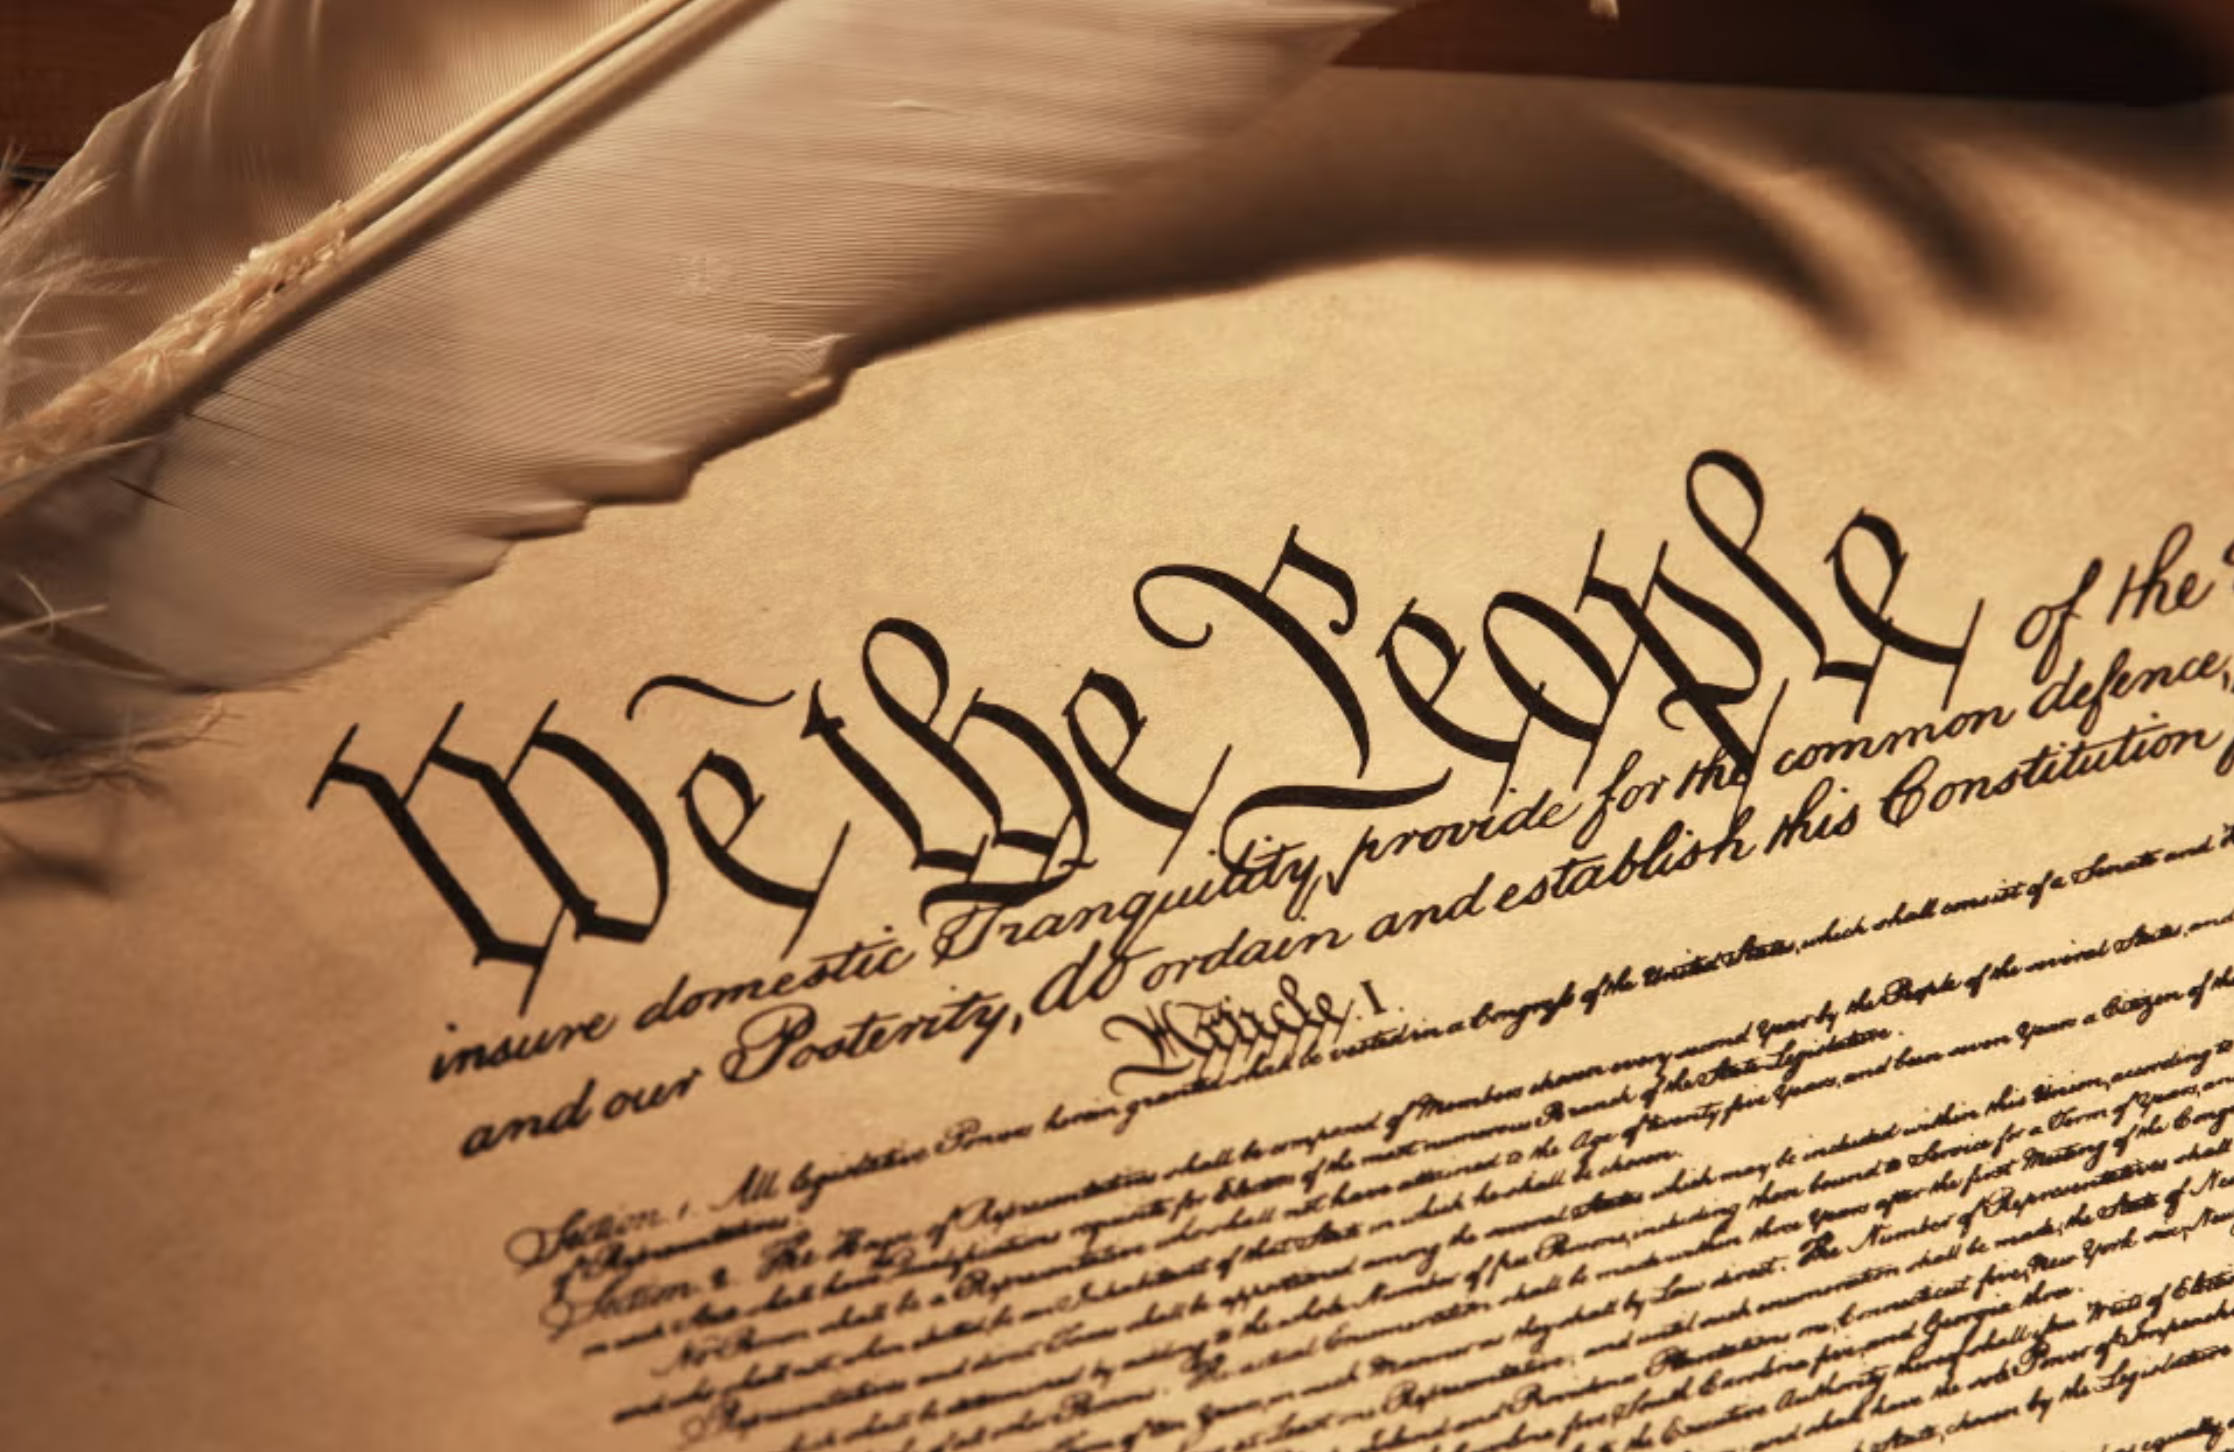 We the People of the
insure domestic Tranquility, provide for the common defence,
and our Posterity, do ordain and establish this Constitution
Article. I.
Section. 1. All legislative Powers herein granted shall be vested in a Congress of the United States, which shall consist of a Senate and
of Representatives.
Section. 2. The House of Representatives shall be composed of Members chosen every second Year by the People of the several States, and
in each State shall have the Qualifications requisite for Electors of the most numerous Branch of the State Legislature.
No Person shall be a Representative who shall not have attained to the Age of twenty five Years, and been seven Years a Citizen of the
and who shall not, when elected, be an Inhabitant of that State in which he shall be chosen.
Representatives and direct Taxes shall be apportioned among the several States which may be included within this Union, according to
which shall be determined by adding to the whole Number of free Persons, including those bound to Service for a Term of Years, and
of all other Persons. The actual Enumeration shall be made within three Years after the first Meeting of the Cong
of ten Years, in such Manner as they shall by Law direct. The Number of Representatives shall
at Least one Representative; and until such enumeration shall be made, the State of New
and Providence Plantations one, Connecticut five, New York six, New
Carolina five, South Carolina five, and Georgia three.
the Executive Authority thereof shall issue Writs of Elect
and shall have the sole Power of Impeach
State, chosen by the Legislature
equally